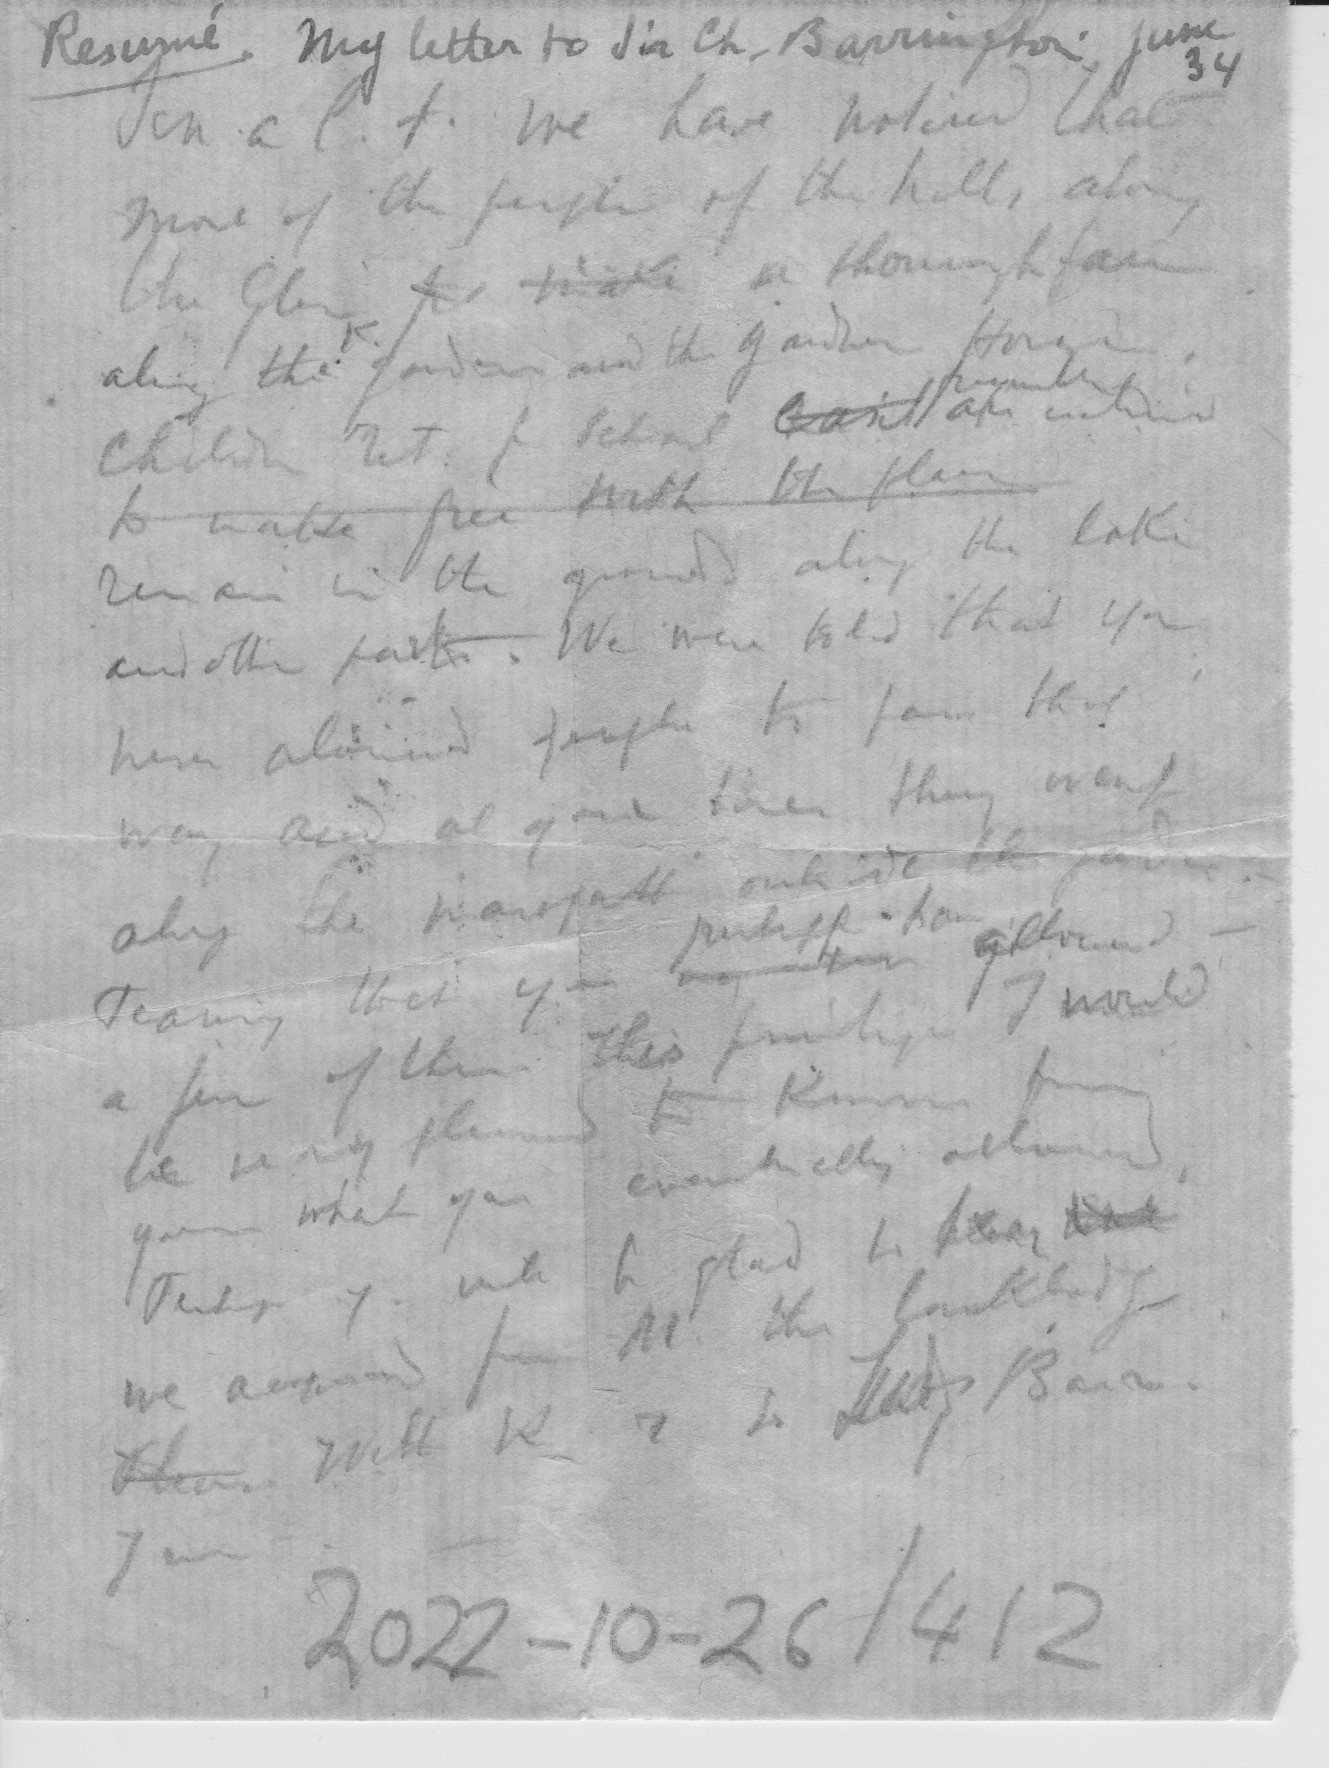 Resumé. My letter to Sir Ch. Barrington. June
34
we have noticed that
most of the people of the hills, along
the Glen, to make a thoroughfare
along the K. garden and the gardner House,
Children ret. f School are inclined
to make free with the place
remain in the grounds along the lake
and other parts. We were told that you
never allowed people to pass this
way and at your time they went
along the outside the garden.
that you perhaps have allowed
a few of them this privilege I would
be very pleased to know from
you what you eventually allowed.
Perhaps y. will be glad to hear
we acquired from M. the
Please With K. r. to Lady Barr.
I am
2022-10-26/412